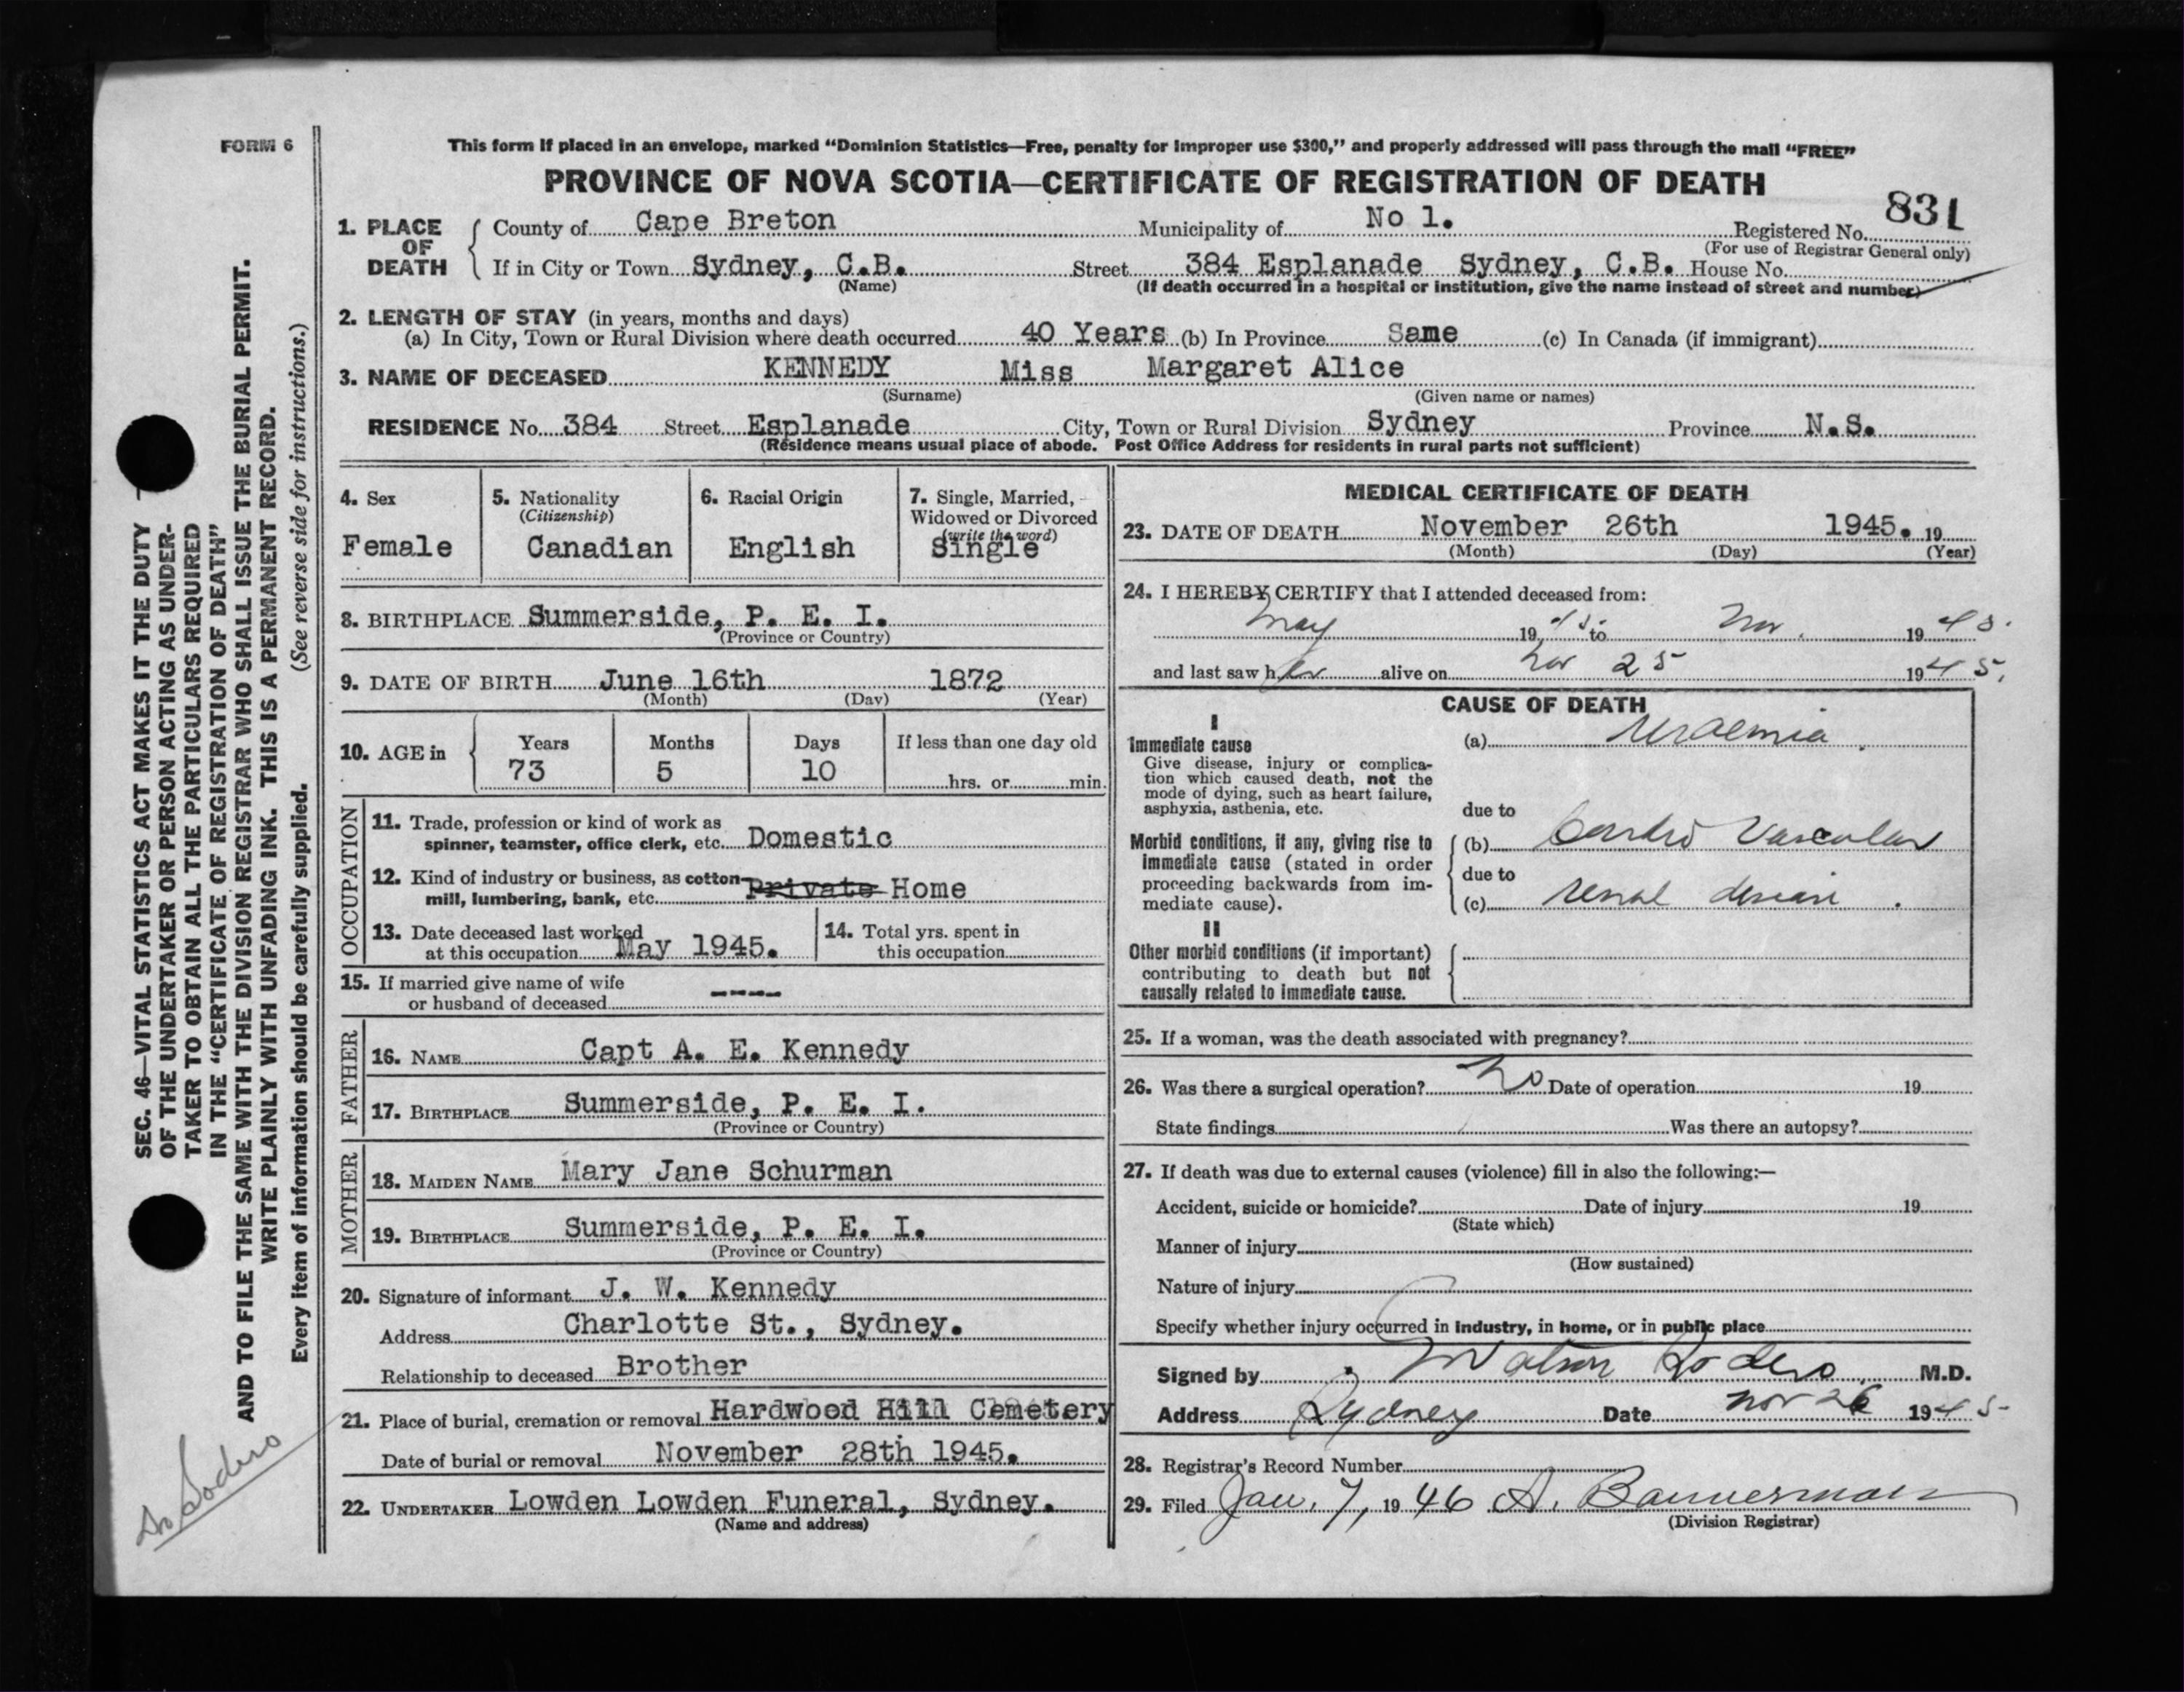 FORM 6
This form if placed in an envelope, marked “Dominion Statistics—Free, penalty for improper use $300,” and properly addressed will pass through the mail “FREE”
PROVINCE OF NOVA SCOTIA—CERTIFICATE OF REGISTRATION OF DEATH
831
1. PLACE OF DEATH County of Cape Breton Municipality of No 1. Registered No.
(For use of Registrar General only)
If in City or Town Sydney, C.B. Street 384 Esplanade Sydney, C.B. House No.
(Name) (If death occurred in a hospital or institution, give the name instead of street and number)
2. LENGTH OF STAY (in years, months and days)
(a) In City, Town or Rural Division where death occurred 40 Years (b) In Province Same (c) In Canada (if immigrant)
3. NAME OF DECEASED KENNEDY Miss Margaret Alice
(Surname) (Given name or names)
RESIDENCE No. 384 Street Esplanade City, Town or Rural Division Sydney Province N.S.
(Residence means usual place of abode. Post Office Address for residents in rural parts not sufficient)
4. Sex
Female
5. Nationality
(Citizenship)
Canadian
6. Racial Origin
English
7. Single, Married,
Widowed or Divorced
(write the word)
Single
8. BIRTHPLACE Summerside, P. E. I.
(Province or Country)
9. DATE OF BIRTH June 16th 1872
(Month) (Day) (Year)
10. AGE in Years Months Days If less than one day old
73 5 10 hrs. or min.
OCCUPATION
11. Trade, profession or kind of work as
spinner, teamster, office clerk, etc. Domestic
12. Kind of industry or business, as cotton
mill, lumbering, bank, etc. Private Home
13. Date deceased last worked
at this occupation May 1945.
14. Total yrs. spent in
this occupation
15. If married give name of wife
or husband of deceased ----
FATHER
16. NAME Capt A. E. Kennedy
17. BIRTHPLACE Summerside, P. E. I.
(Province or Country)
MOTHER
18. MAIDEN NAME Mary Jane Schurman
19. BIRTHPLACE Summerside, P. E. I.
(Province or Country)
20. Signature of informant J. W. Kennedy
Address Charlotte St., Sydney.
Relationship to deceased Brother
21. Place of burial, cremation or removal Hardwood Hill Cemetery
Date of burial or removal November 28th 1945.
22. UNDERTAKER Lowden Lowden Funeral, Sydney.
(Name and address)
MEDICAL CERTIFICATE OF DEATH
23. DATE OF DEATH November 26th 1945. 19
(Month) (Day) (Year)
24. I HEREBY CERTIFY that I attended deceased from:
May 19 45 to Nov. 19 45.
and last saw her alive on Nov 25 1945.
CAUSE OF DEATH
I
Immediate cause (a) Uraemia.
Give disease, injury or complica-
tion which caused death, not the
mode of dying, such as heart failure,
asphyxia, asthenia, etc.
due to
Morbid conditions, if any, giving rise to
immediate cause (stated in order
proceeding backwards from im-
mediate cause).
(b) Cardio Vascular
due to
(c) renal disease.
II
Other morbid conditions (if important)
contributing to death but not
causally related to immediate cause.
25. If a woman, was the death associated with pregnancy?
26. Was there a surgical operation? No Date of operation 19
State findings Was there an autopsy?
27. If death was due to external causes (violence) fill in also the following:—
Accident, suicide or homicide? Date of injury 19
(State which)
Manner of injury
(How sustained)
Nature of injury
Specify whether injury occurred in industry, in home, or in public place
Signed by Watson Sodero M.D.
Address Sydney Date Nov 26 1945
28. Registrar's Record Number
29. Filed Jan. 7, 1946 A. Bannerman
(Division Registrar)
SEC. 46—VITAL STATISTICS ACT MAKES IT THE DUTY
OF THE UNDERTAKER OR PERSON ACTING AS UNDER-
TAKER TO OBTAIN ALL THE PARTICULARS REQUIRED
IN THE “CERTIFICATE OF REGISTRATION OF DEATH”
AND TO FILE THE SAME WITH THE DIVISION REGISTRAR WHO SHALL ISSUE THE BURIAL PERMIT.
WRITE PLAINLY WITH UNFADING INK. THIS IS A PERMANENT RECORD.
Every item of information should be carefully supplied. (See reverse side for instructions.)
Dr Sodero